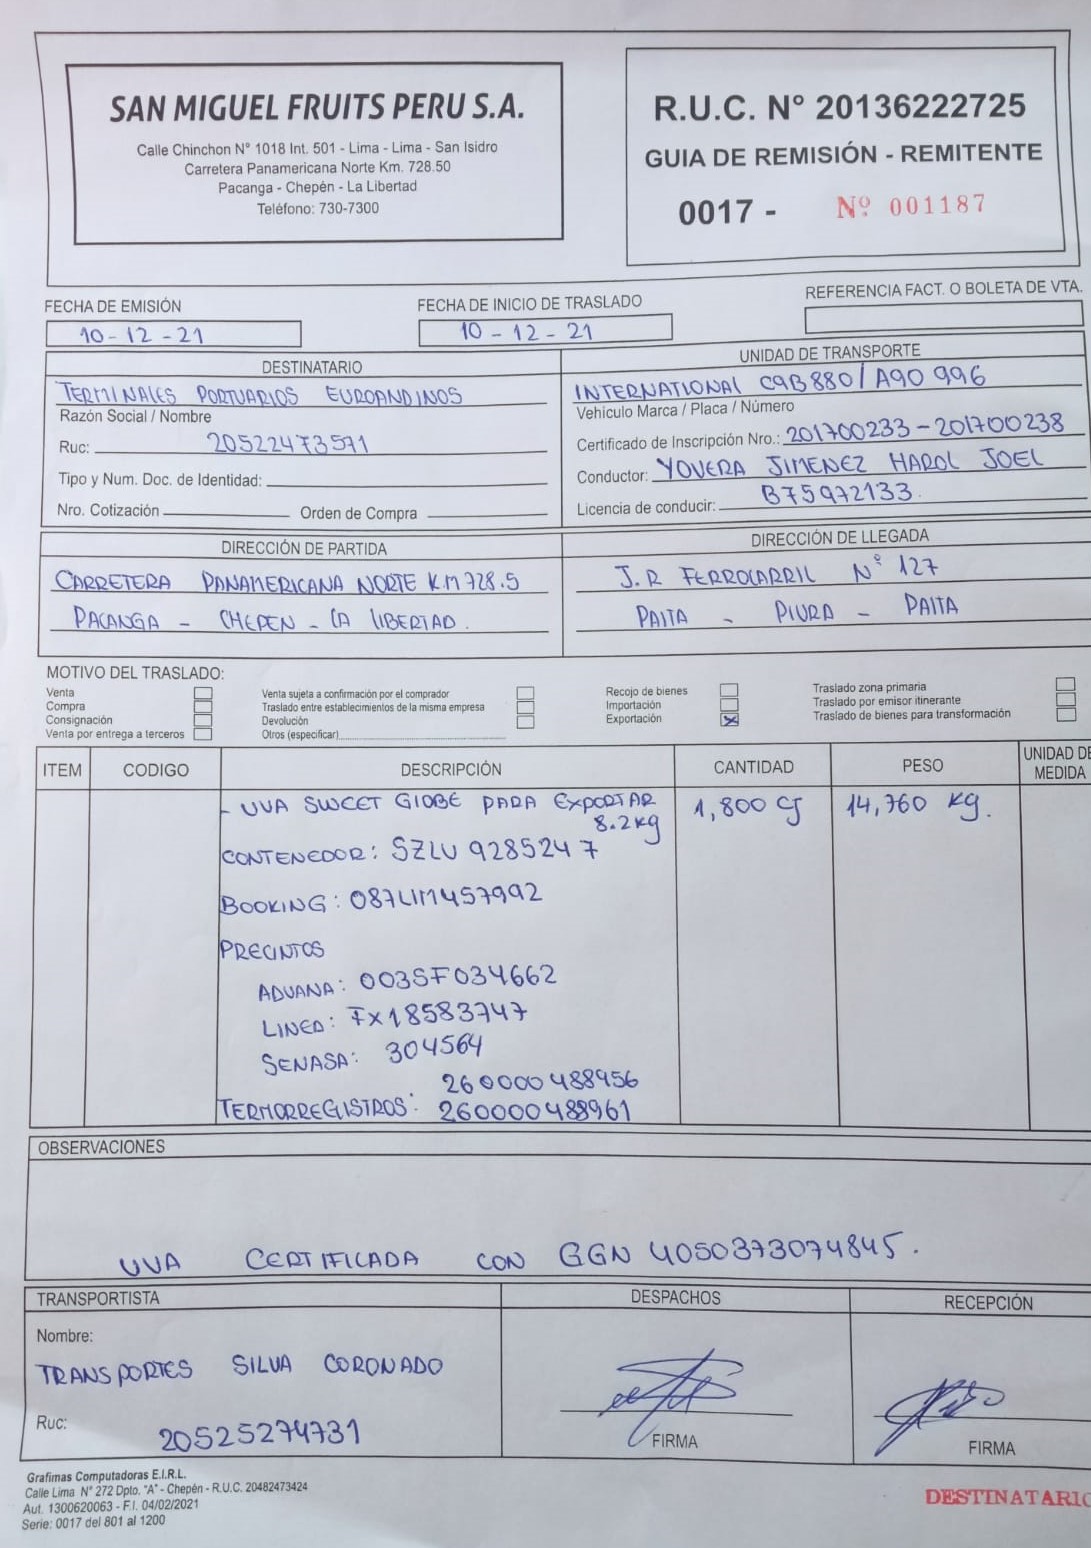 SAN MIGUEL FRUITS PERU S.A.
Calle Chinchon N° 1018 Int. 501 - Lima - Lima - San Isidro
Carretera Panamericana Norte Km. 728.50
Pacanga - Chepén - La Libertad
Teléfono: 730-7300
R.U.C. N° 20136222725
GUIA DE REMISIÓN - REMITENTE
0017 - Nº 001187
FECHA DE EMISIÓN
10-12-21
FECHA DE INICIO DE TRASLADO
10-12-21
REFERENCIA FACT. O BOLETA DE VTA.
DESTINATARIO
TERMINALES PORTUARIOS EUROANDINOS
Razón Social / Nombre
Ruc: 20522473571
Tipo y Num. Doc. de Identidad:
Nro. Cotización Orden de Compra
UNIDAD DE TRANSPORTE
INTERNATIONAL C9B880/A90 996
Vehículo Marca / Placa / Número
Certificado de Inscripción Nro.: 201700233-201700238
Conductor: YOVERA JIMENEZ HAROL JOEL
Licencia de conducir: B75972133
DIRECCIÓN DE PARTIDA
CARRETERA PANAMERICANA NORTE KM 728.5
PACANGA - CHEPEN - LA LIBERTAD.
DIRECCIÓN DE LLEGADA
J.R FERROCARRIL N° 127
PAITA - PIURA - PAITA
MOTIVO DEL TRASLADO:
Venta
Compra
Consignación
Venta por entrega a terceros
Venta sujeta a confirmación por el comprador
Traslado entre establecimientos de la misma empresa
Devolución
Otros (especificar)
Recojo de bienes
Importación
Exportación X
Traslado zona primaria
Traslado por emisor itinerante
Traslado de bienes para transformación
ITEM CODIGO DESCRIPCIÓN CANTIDAD PESO UNIDAD DE MEDIDA
- UVA SWEET GlOBE PARA EXPORTAR 1,800 CJ 14,760 kg.
8.2kg
CONTENEDOR: SZLU 9285247
BOOKING: 087LIM457992
PRECINTOS
ADUANA: 003SF034662
LINEA: FX18583747
SENASA: 304564
260000488956
TERMORREGISTROS: 260000488961
OBSERVACIONES
UVA CERTIFICADA CON GGN 4050373074845.
TRANSPORTISTA
Nombre:
TRANSPORTES SILVA CORONADO
Ruc: 20525274731
DESPACHOS
FIRMA
RECEPCIÓN
FIRMA
Grafimas Computadoras E.I.R.L.
Calle Lima N° 272 Dpto. "A" - Chepén - R.U.C. 20482473424
Aut. 1300620063 - F.I. 04/02/2021
Serie: 0017 del 801 al 1200
DESTINATARIO